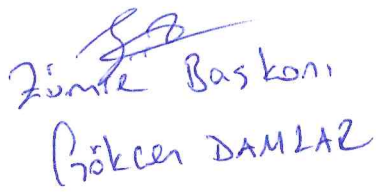 Zümre Başkanı
Gökcen DAMLAR